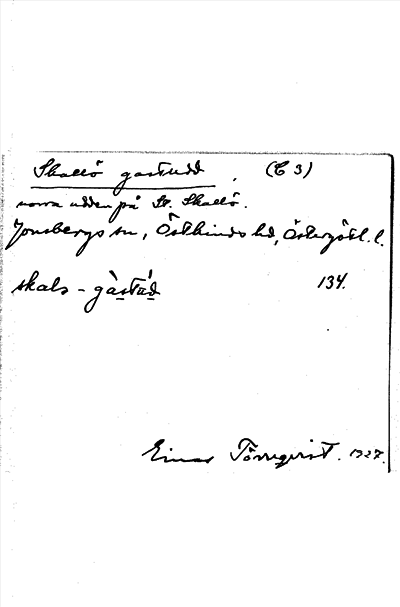 Skallö gastudd. (C 3)
norra udden på St. Skallö.
Jonsbergs sn, Östkinds hd, Östergötl. l.
skals - gàstúd 134.
Einar Törnqvist. 1927.